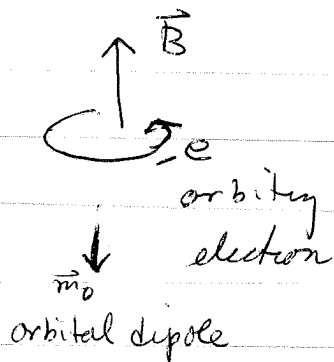 B⃗
-e
orbiting
electron
m⃗₀
orbital dipole